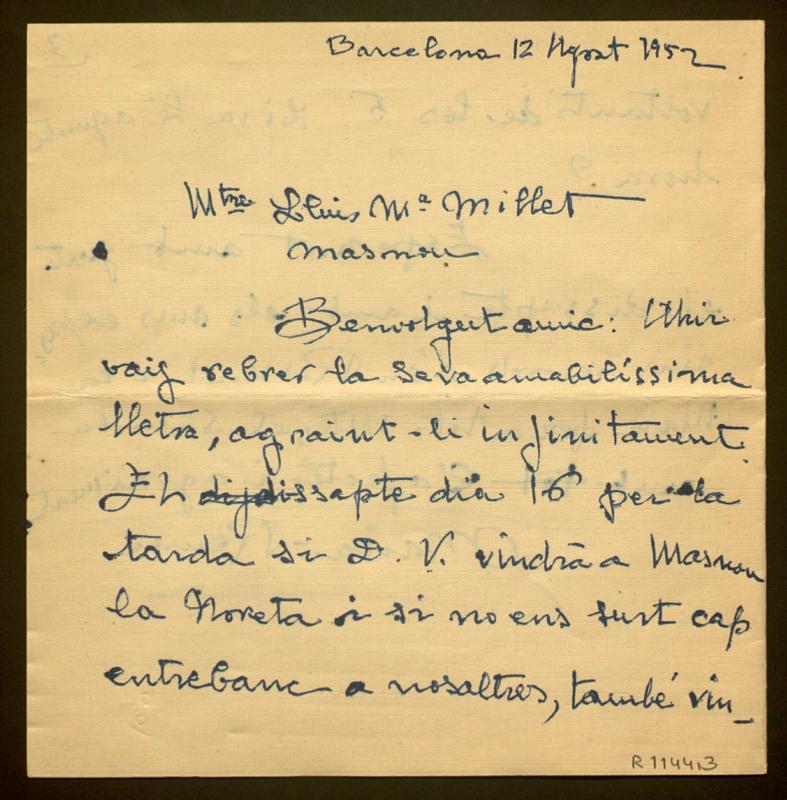 Barcelona 12 Agost 1952
Mtre Lluis Mª Millet
Masnou
Benvolgut amic: Ahir
vaig rebrer la seva amabilíssima
lletra, agraint-li infinitament.
El dijdissapte dia 16 per la
tarda si D. V. vindrà a Masnou
la Noreta i si no ens surt cap
entrebanc a nosaltres, també vin_
R 11441.3